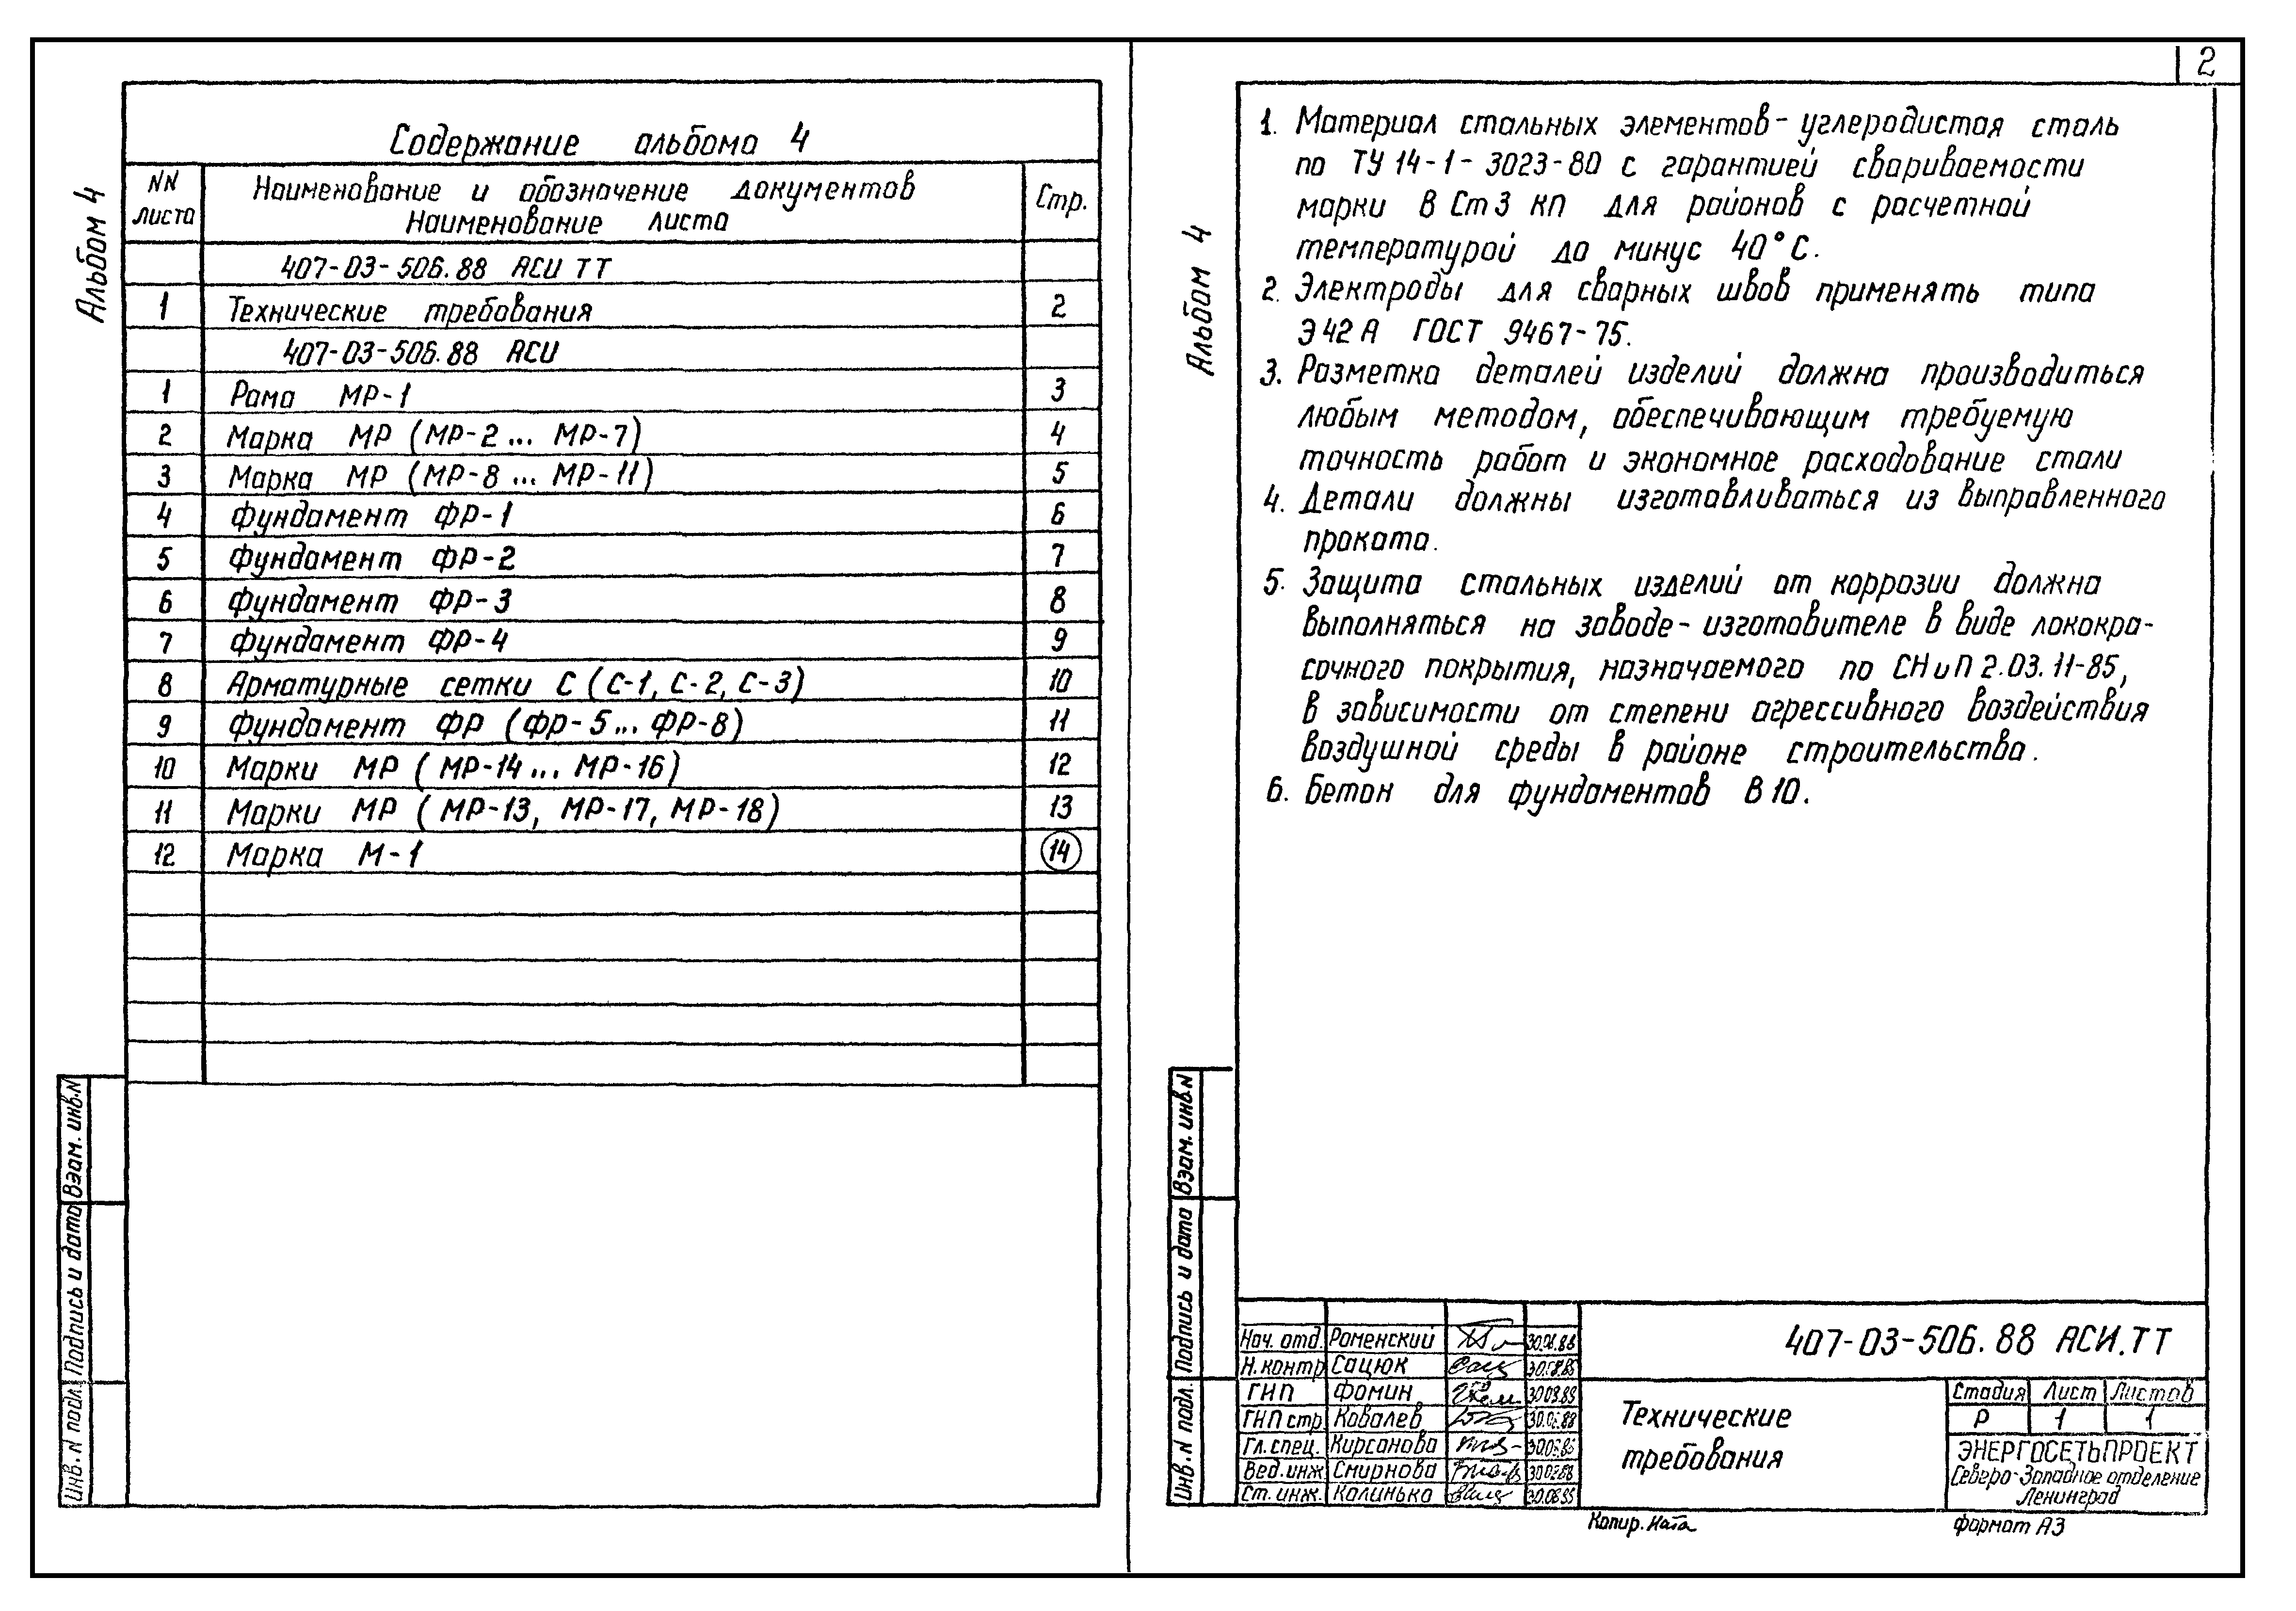 2
Альбом 4
Содержание альбома 4
NN листа
Наименование и обозначение документов
Наименование листа
Стр.
407-03-506.88 АСИ ТТ
1 Технические требования 2
407-03-506.88 АСИ
1 Рама МР-1 3
2 Марка МР (МР-2... МР-7) 4
3 Марка МР (МР-8... МР-11) 5
4 Фундамент ФР-1 6
5 Фундамент ФР-2 7
6 Фундамент ФР-3 8
7 Фундамент ФР-4 9
8 Арматурные сетки С (С-1, С-2, С-3) 10
9 Фундамент ФР (ФР-5... ФР-8) 11
10 Марки МР (МР-14... МР-16) 12
11 Марки МР (МР-13, МР-17, МР-18) 13
12 Марка М-1 14
Взам. инв. N
Подпись и дата
Инв. N подл.
Альбом 4
1. Материал стальных элементов - углеродистая сталь
по ТУ 14-1-3023-80 с гарантией свариваемости
марки В Ст 3 кп для районов с расчетной
температурой до минус 40°С.
2. Электроды для сварных швов применять типа
Э 42 А ГОСТ 9467-75.
3. Разметка деталей изделий должна производиться
любым методом, обеспечивающим требуемую
точность работ и экономное расходование стали
4. Детали должны изготавливаться из выправленного
проката.
5. Защита стальных изделий от коррозии должна
выполняться на заводе-изготовителе в виде лококра-
сочного покрытия, назначаемого по СНиП 2.03.11-85,
в зависимости от степени агрессивного воздействия
воздушной среды в районе строительства.
6. Бетон для фундаментов В 10.
Взам. инв. N
Подпись и дата
Инв. N подл.
Нач. отд. Роменский
Н. контр Сацюк
ГИП Фомин
ГИП стр Ковалев
Гл. спец. Кирсанова
Вед. инж Смирнова
Ст. инж. Калинько
407-03-506.88 АСИ.ТТ
Технические
требования
Стадия Лист Листов
Р 1 1
ЭНЕРГОСЕТЬПРОЕКТ
Северо-Западное отделение
Ленинград
Копир. Ната
формат А3